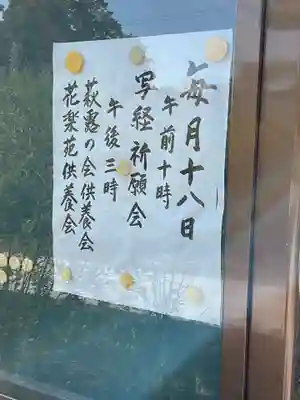 毎月十八日
午前十時
写経祈願会
午後三時
萩露の会供養会
花楽苑供養会